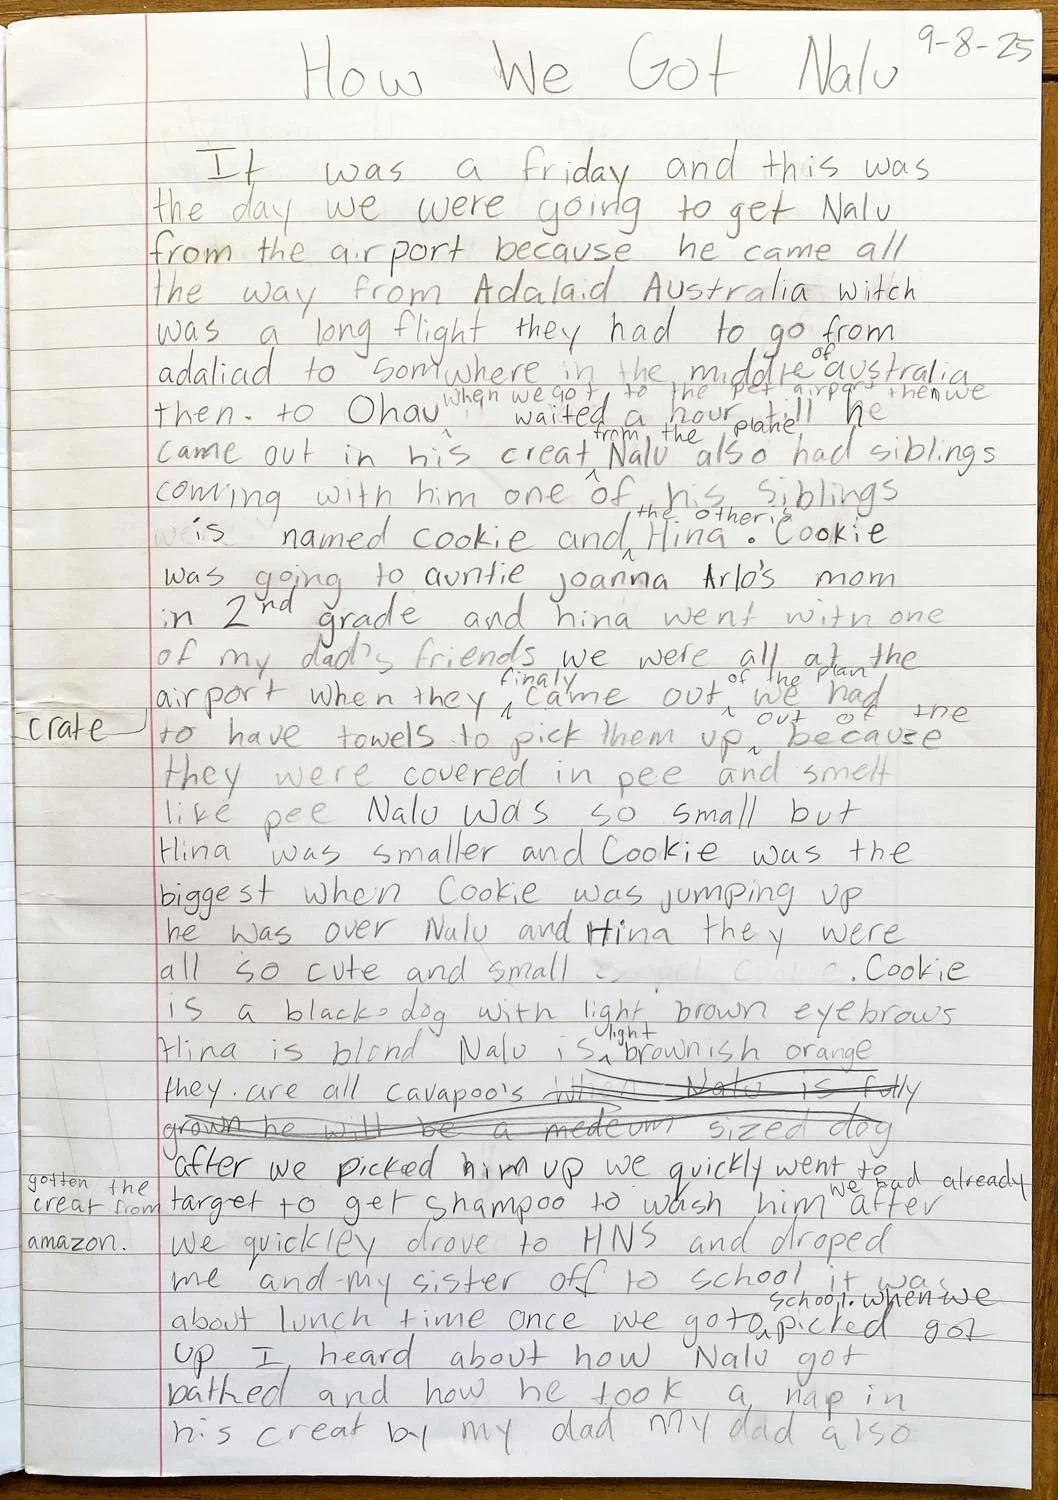 9-8-25
How We Got Nalu
It was a friday and this was
the day we were going to get Nalu
from the airport because he came all
the way from Adalaid Australia witch
was a long flight they had to go from
adaliad to Somwhere in the middle of australia
then. to Ohau when we got to the pet airport then we
waited a hour till he
came out in his creat from the plane Nalu also had siblings
coming with him one of his siblings
is named cookie and the other is Hina. Cookie
was going to auntie joanna Arlo's mom
in 2nd grade and hina went with one
of my dad's friends we were all at the
airport when they finaly came out of the plan we had
to have towels to pick them up out of the crate because
they were covered in pee and smelt
like pee Nalu was so small but
Hina was smaller and Cookie was the
biggest when Cookie was jumping up
he was over Nalu and Hina they were
all so cute and small . Cookie
is a black dog with light brown eyebrows
Hina is blond Nalu is light brownish orange
they are all cavapoo's When Nalu is fully
grown he will be a medeum sized dog
after we picked him up we quickly went to
target to get shampoo to wash him we had already
gotten the
creat from
amazon.
after
we quickley drove to HNS and droped
me and my sister off to school it was
about lunch time once we got to school. when we
got picked
up I heard about how Nalu got
bathed and how he took a nap in
his creat by my dad My dad also